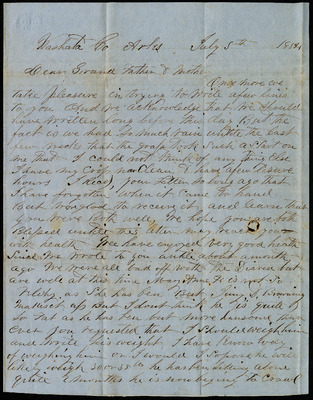 Washita Co Arks July 5th 1858
Dear Grand Father & Mother
Once more we
take pleasure in trying to Write a few lines
to you And we acknowledge that we should
have written long before this day But the
fact is we had so much rain until the last
few weeks that the grass took such a start on
me that I could not think of any thing else
I have my Crop now Clean & have a few leisure
hours I Read your letter so long ago that
I can
But was glad to receive it and learn that
you were both well We hope you are both
Blessed until this letter may reach you
with health We have enjoyed very good health
Since we wrote to you until about a month
ago We were all bad off with the
are well at this time
as he has been
about sick he is quite
so fat as he has been but more handsome than
Ever you requested that I should weigh him
and write his weight I have know way
of weighing him or I would I suppose he will
likely weigh he has been sitting alone
quite 2 months he is now trying to Crawl